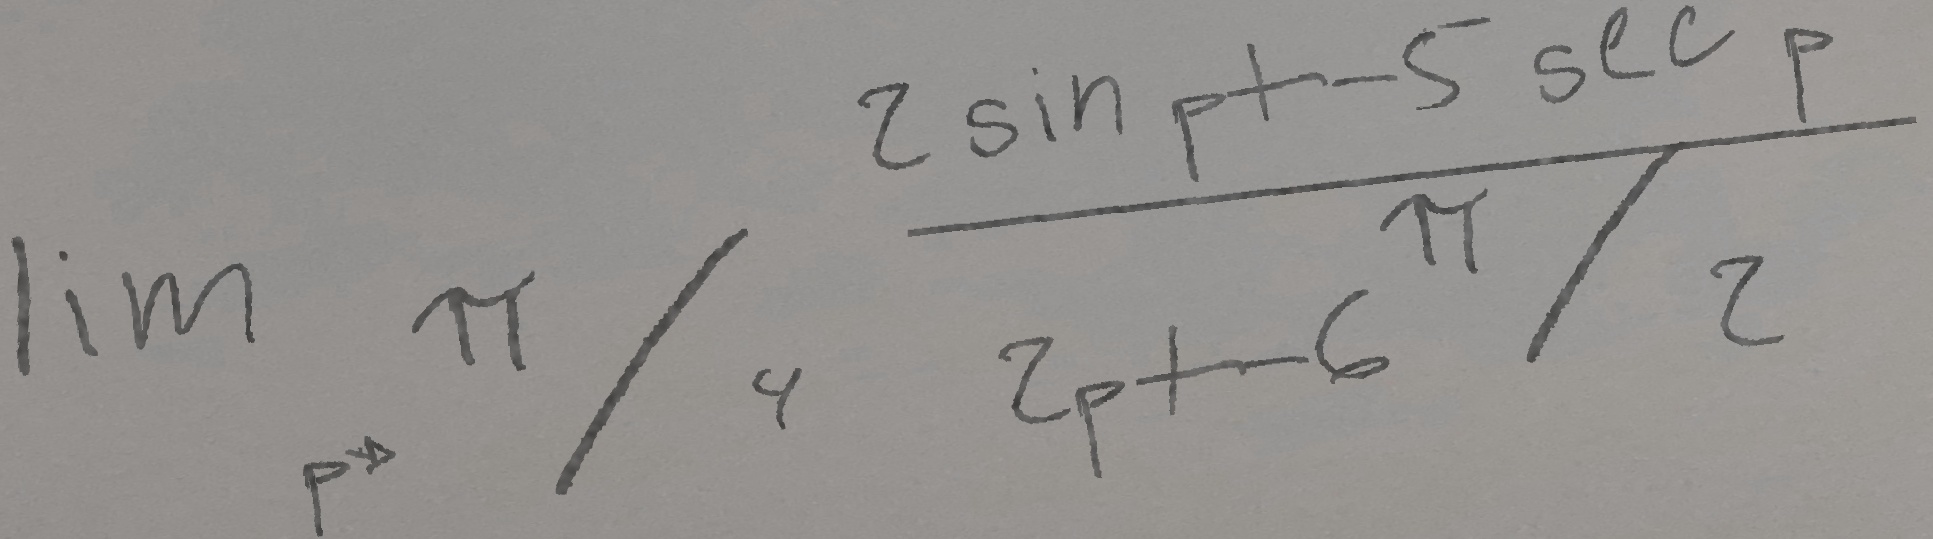 \lim_{p \to \pi/4} \frac{2 \sin p + -5 \sec p}{2p + -6 \pi/2}